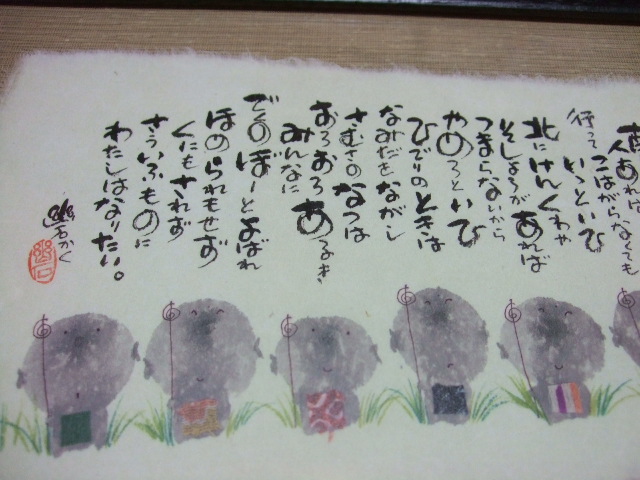 人あれば
行って
こはがらなくても
いゝといひ
北にけんくわや
そしょうがあれば
つまらないから
やめろといひ
ひでりのときは
なみだをながし
さむさのなつは
おろおろあるき
みんなに
でくのぼーとよばれ
ほめられもせず
くにもされず
さういふものに
わたしはなりたい。
かく